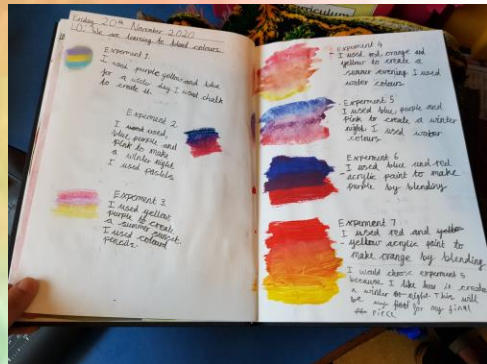 Friday 20th November 2020
LO: We are learning to blend colours.
Experment 1.
I used purple yellow and blue
for a winter day I used chalk
to create it.
Experment 2.
I used,
blue, purple and
pink to make
a winter night.
I used pastels
Experment 3.
I used yellow
purple to create
a summer sunset.
I used colourd
pencils.
Experment 4
I used red, orange and
yellow to create a
summer evening I used
water colours
Experment 5
I used blue, purple and
pink to create a winter
night I used water
colours
Experment 6
I used blue and red
acrylic paint to make
purple by blending
Experment 7
I used red and yellow
- yellow acrylic paint to
make orange by blending
I would choose experment 5
because I like how is create
a winter night. This will
be my for my final
piece